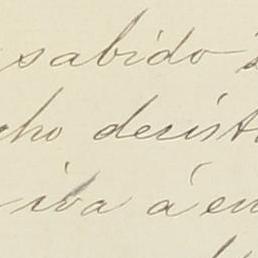 sabido
cho decist
iva á en